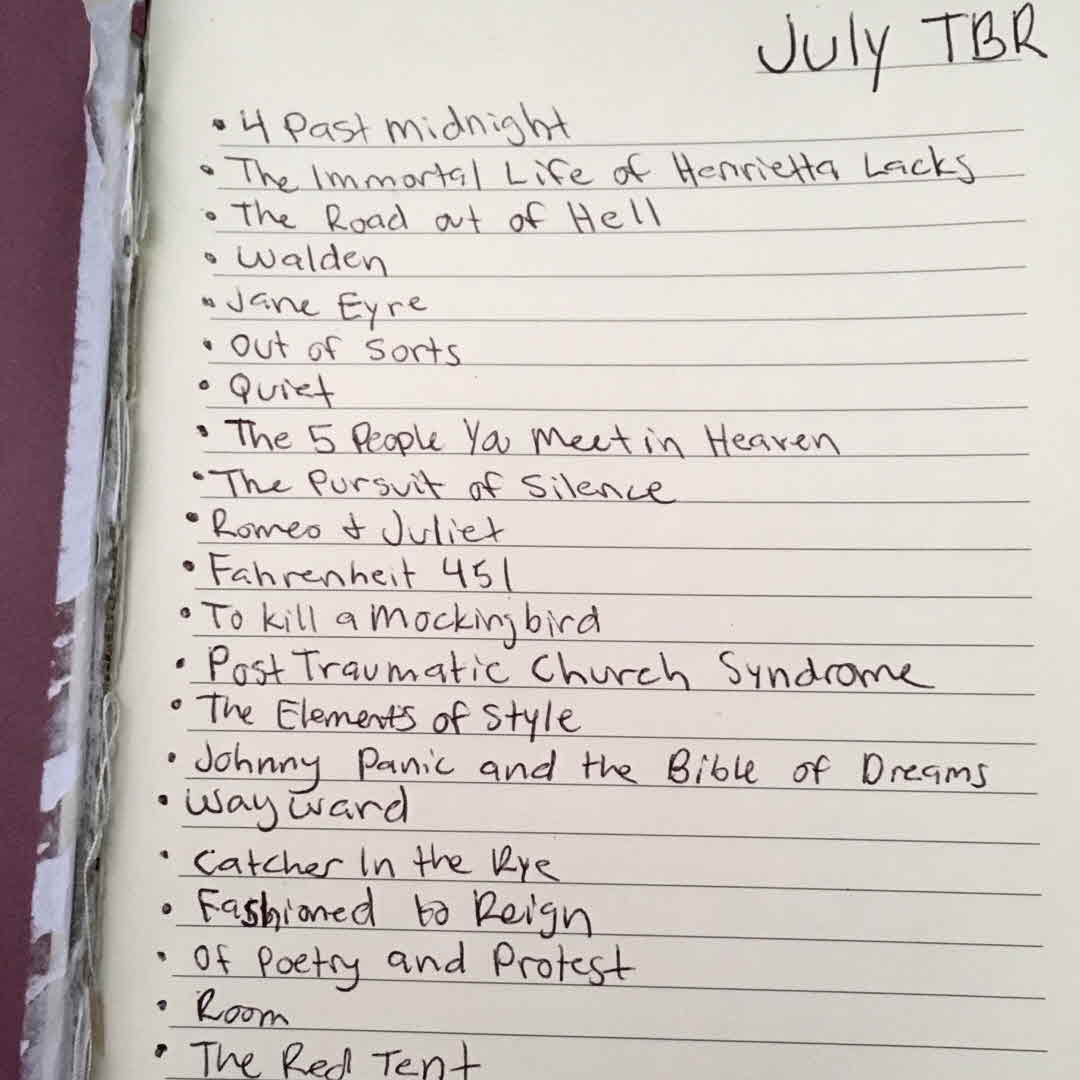 July TBR
• 4 Past midnight
• The Immortal Life of Henrietta Lacks
• The Road out of Hell
• Walden
• Jane Eyre
• Out of Sorts
• Quiet
• The 5 People You Meet in Heaven
• The Pursuit of Silence
• Romeo & Juliet
• Fahrenheit 451
• To Kill a Mockingbird
• Post Traumatic Church Syndrome
• The Elements of Style
• Johnny Panic and the Bible of Dreams
• Wayward
• Catcher In the Rye
• Fashioned to Reign
• Of Poetry and Protest
• Room
• The Red Tent